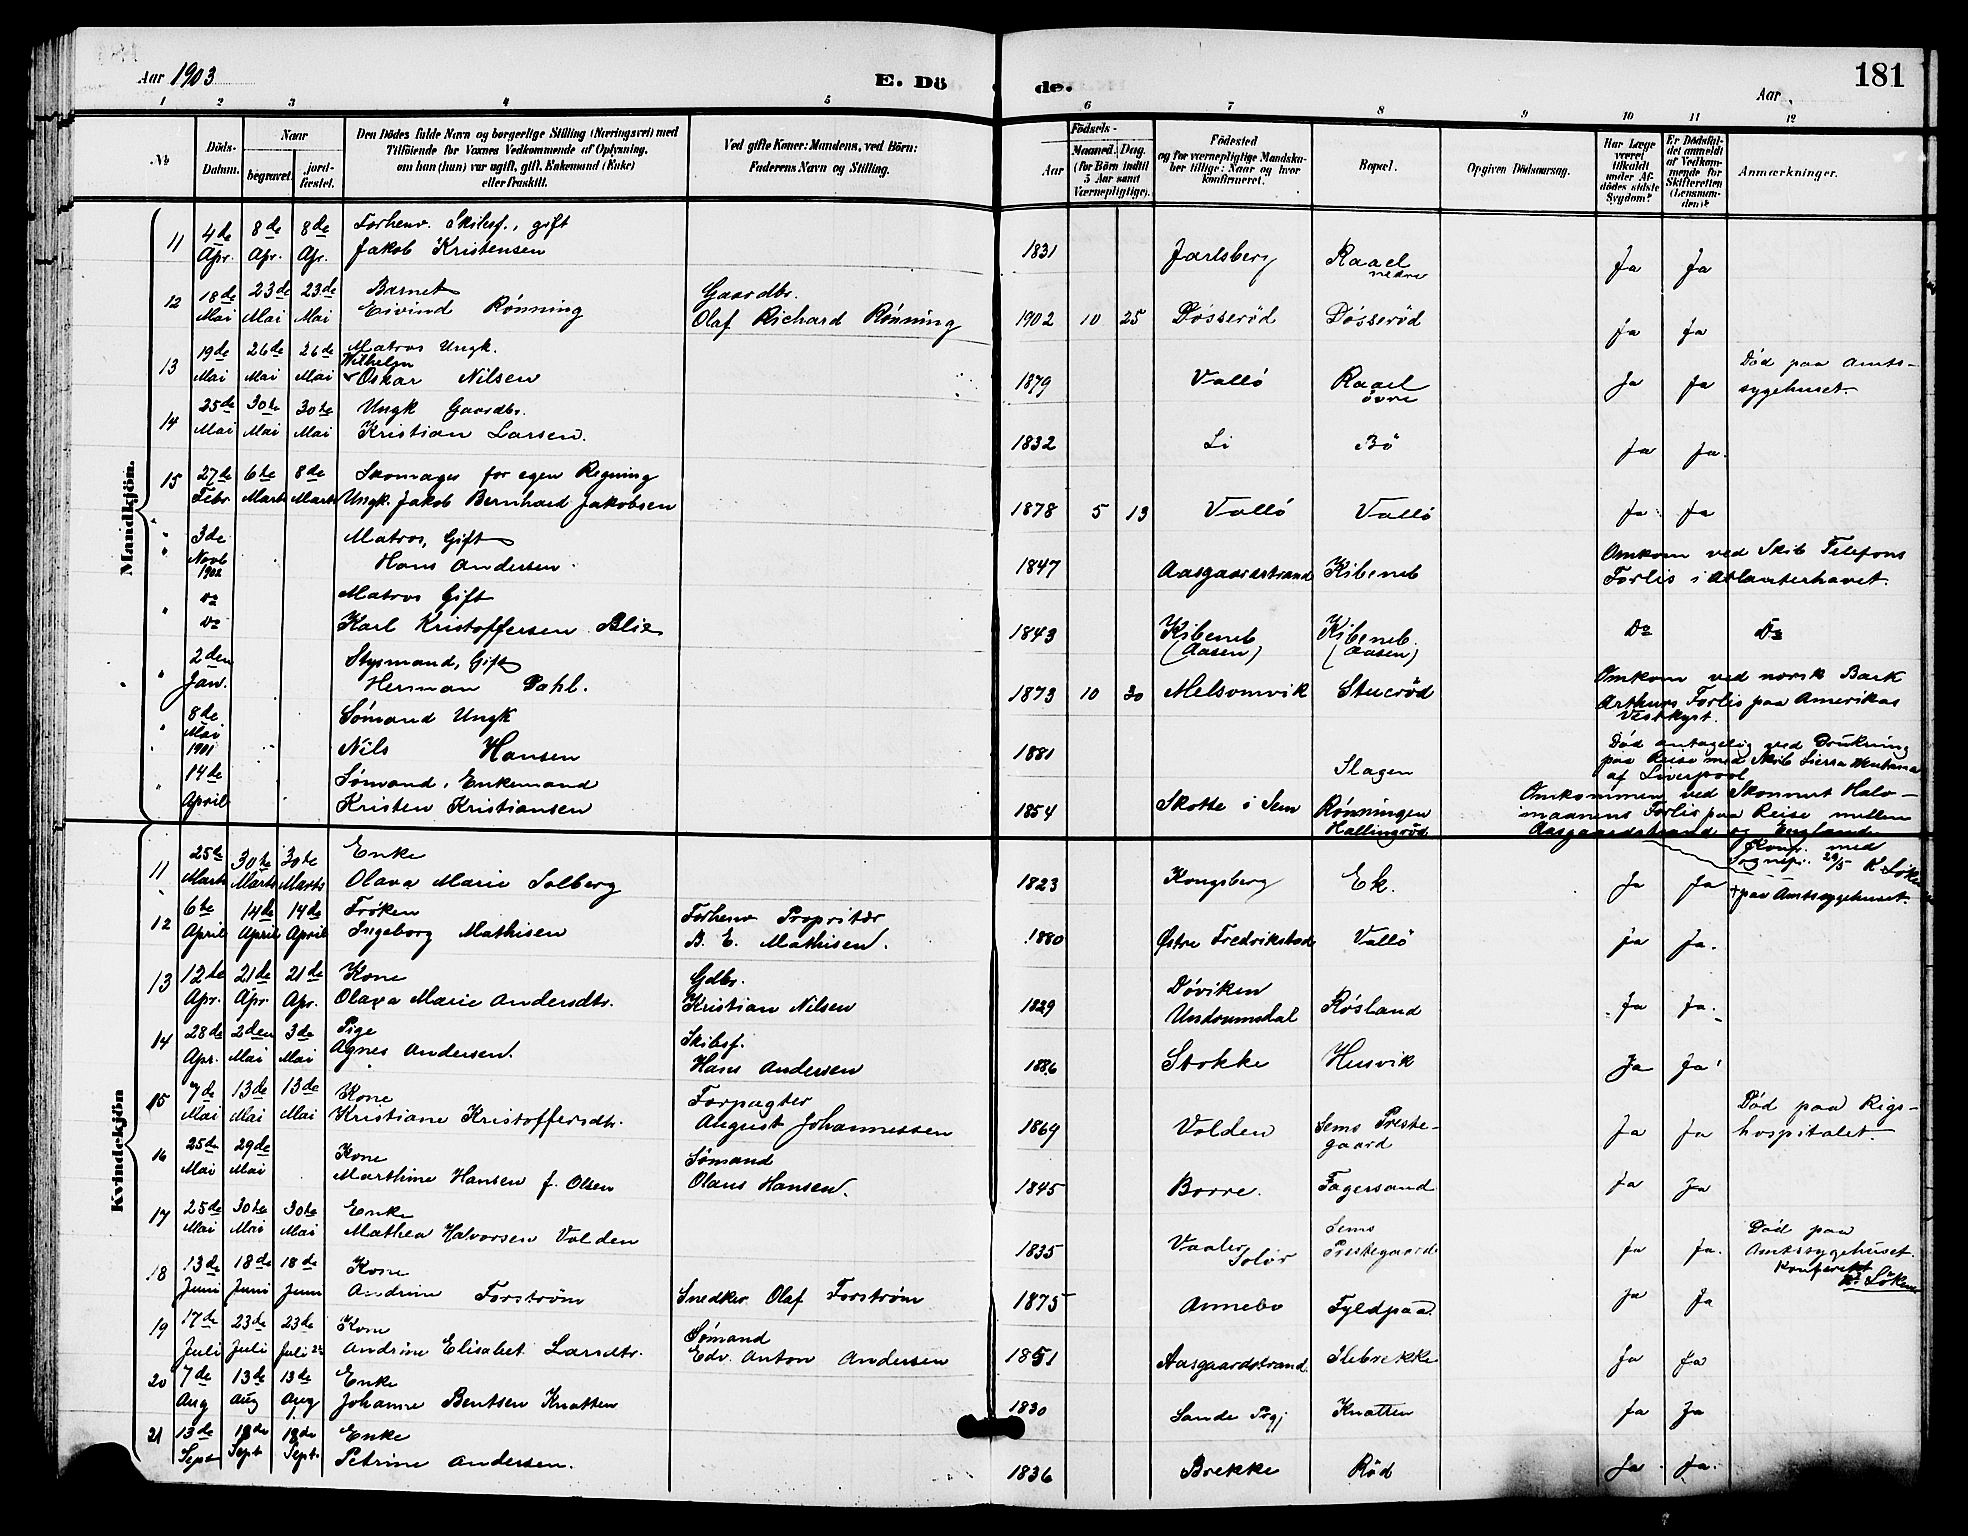 Aar 1903
E. Dö de.
Aar
181
1 2 3 4 5 6 7 8 9 10 11 12
No
Döds-Datum.
Naar
begravet.
jordfæstet.
Den Dödes fulde Navn og borgerlige Stilling (Næringsvei) med
Tilföiende for Voxnes Vedkommende af Oplysning,
om han (hun) var ugift, gift, Enkemand (Enke)
eller fraskilt.
Ved gifte Koner: Mandens, ved Börn:
Faderens Navn og Stilling.
Födsels-
Aar
Maaned. Dag.
(for Börn indtil
5 Aar samt
Værnepligtige).
Födested
og for værnepligtige Mandskaber tillige: Naar og hvor
konfirmeret.
Bopæl.
Opgiven Dödsaarsag.
Har Læge
været
tilkaldt
under Afdödes sidste
Sygdom?
Er Dödsfaldet anmeldt
af Vedkommende for
Skifteretten
(Lensmanden)?
Anmærkninger.
Mandkjön.
11 4de Apr. 8de Apr. 8de Apr. Forhenv. Skibsf., gift
Jakob Kristensen 1831 Jarlsberg Raael nedre Ja Ja
12 18de Mai 23de Mai 23de Mai Barnet
Eivind Rönning Gaardbr.
Olaf Richard Rönning 1902 10 25 Dösseröd Dösseröd Ja Ja
13 19de Mai 26de Mai 26de Mai Matros Ungk.
Wilhelm
Oskar Nilsen 1879 Vallö Raael övre Ja Ja Död paa Amts-
sygehuset.
14 25de Mai 30te Mai 30te Mai Ungk Gaardbr.
Kristian Larsen. 1832 Li Bö Ja Ja.
15 27de Febr 6te Marts 8de Marts Skomager for egen Regning
Ungk. Jakob Bernhard Jakobsen 1878 5 13 Vallö Vallö Ja Ja
" 3de Novb 1902 Matros, Gift
Hans Andersen. 1847 Aasgaardstrand Kibeneb Omkom ved Skib Telefons
Forlis i Atlanterhavet.
" do do Matros Gift
Karl Kristoffersen 1843 Kibeneb (Aasen) Kibeneb. (Aasen) Do Do
" 2den Jan. Styrmand, Gift
Herman Dahl. 1873 10 30 Melsomvik Stueröd Omkom ved norsk Bark
Arthurs Forlis paa Amerikas
Vestkyst.
" 8de Mai 1901 Sömand Ungk
Nils Hansen 1881 Slagen Död antagelig ved Drukning
paa Reise med Skib Sierra
af Liverpool
" 14de April Sömand, Enkemand
Kristen Kristiansen 1854 Skotte i Sem Rönningen
Hallingröd Omkommen ved Skonnert Halv-
maanens Forlis paa Reise mellem
Aasgaardstrand og England
Kvindekjön
11 25de Marts 30te Marts 30te Marts Enke
Olava Marie Solberg 1823 Kongsberg Ek. Ja Ja Konf. med
Sognepr. 29/5
+ paa Amtssygehuset.
12 6te April 14de April 14de April Fröken
Ingeborg Mathisen Forhenv Propritær
B. E. Mathisen. 1880 Östre Fredrikstad Vallö Ja Ja.
13 12te Apr. 21de Apr 21de Apr. Kone
Olava Marie Andersdtr. Gdbr.
Kristian Nilsen 1829 Döviken
Undrumsdal Rösland Ja Ja.
14 28de Apr. 2den Mai 3de Mai Pige
Agnes Andersen. Skibsf.
Hans Andersen 1886 Stokke Husvik Ja Ja
15 7de Mai 13de Mai 13de Mai Kone
Kristiane Kristoffersdtr. Forpagter
August Johannessen 1869 Volden Sems Preste-
gaard Ja Ja Död paa Rigs-
hospitalet.
16 25de Mai 29de Mai Kone
Marthine Hansen f. Olsen Sömand
Olaus Hansen. 1845 Borre. Fagersand Ja Ja
17 25de Mai 30te Mai 30te Mai Enke
Mathea Halvorsen Volden 1835 Vaaler
Solör Sems
Prestegaard Ja Ja. Död paa
Amtssygehuset.
Konfereret
18 13de Juni 18de Juni 18de Juni Kone
Andrine Forström Snedker Olaf Forström 1875 Annebo Fyldpaa. Ja Ja
19 17de Juli 23de Juli 23de Juli Kone
Andrine Elisabet Larsdtr. Sömand
Edv. Anton Andersen 1851 Aasgaardstrand Ilebrekke Ja Ja
20 7de Aug 13de Aug 13de Aug Enke
Johanne Bentsen Knatten 1830 Sande Prgj Knatten Ja Ja
21 13de Sept 18de Sept 18de Sept. Enke
Petrine Andersen. 1836 Brekke Röd Ja Ja.